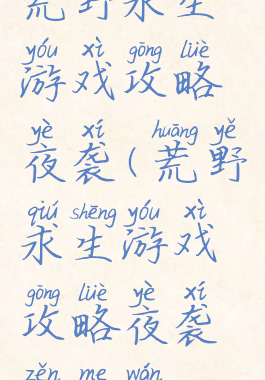 荒野求生
yóu xì gōng lüè
游戏攻略
yè xí huāng yě
夜袭(荒野
qiú shēng yóu xì
求生游戏
gōng lüè yè xí
攻略夜袭
zěn me wán